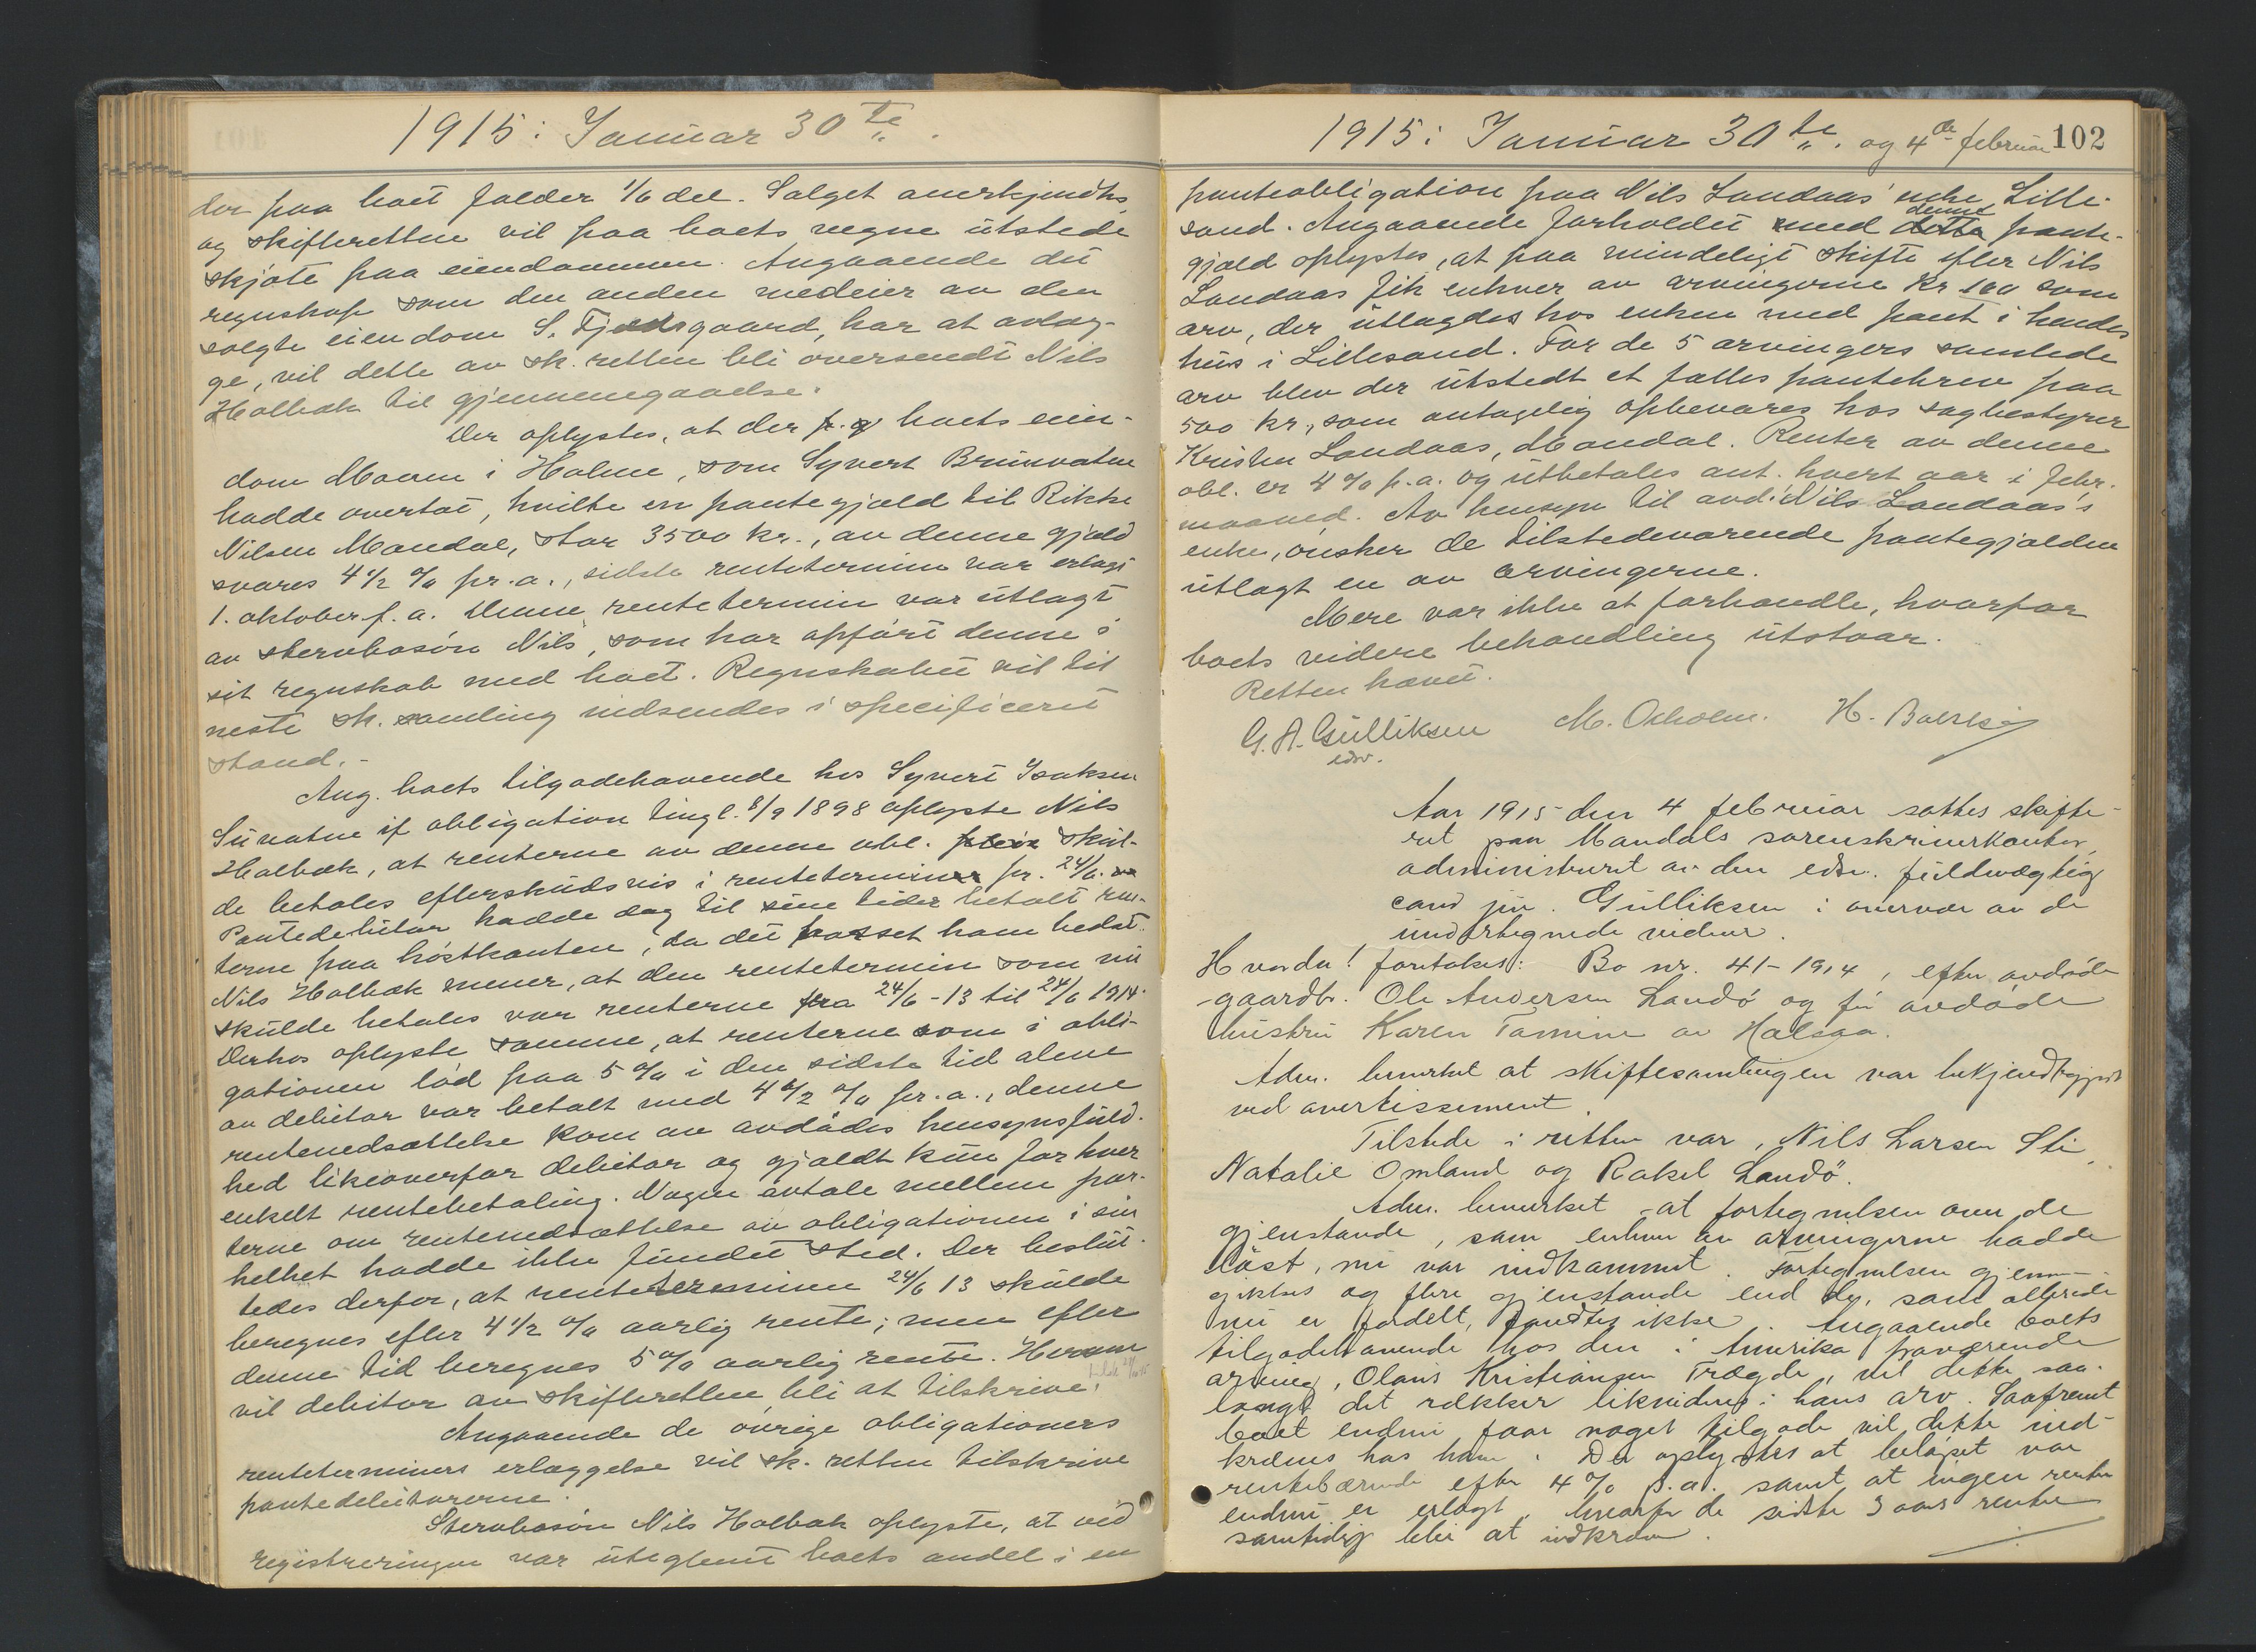 1915: Januar 30te.
der paa boet falder 1/6 del. Salget anerkjendtes
og skifteretten vil paa boets vegne utstede
skjøte paa eiendommen. Angaaende det
regnskap som den anden medeier av den
solgte eiendom S. Fjeldsgaard, har at avlæg-
ge, vil dette av sk. retten bli oversendt Nils
Holbæk til gjennemgaaelse.
Der oplystes, at der p. g boets eien-
dom Moeren i Holme, som Syvert Brunvatne
hadde overtat, hvilte en pantegjæld til Rikke
Nilsen Mandal, stor 3500 kr., av denne gjæld
svares 4 1/2 % pr. a., sidste rentetermin var erlagt
1. oktober f. a. Denne rentetermin var utlagt
av stervbosøn Nils, som har opført denne i
sit regnskab med boet. Regnskabet vil til
neste sk. samling indsendes i specificeret
stand.-
Ang. boets tilgodehavende hos Syvert Isaksen
Suvatne if obligation tingl. 8/9 1898 oplyste Nils
Holbæk, at renterne av denne obl. skul-
de betales efterskudsvis i renteterminer pr. 24/6.
Pantedebitor hadde dog til sine tider betalt ren-
terne paa høstkanten, da det passet ham bedst.
Nils Holbæk mener, at den rentetermin som nu
skulde betales var renterne fra 24/6 -13 til 24/6 1914.
Derhos oplyste samme, at renterne som i obli-
gationen lød paa 5 % i den sidste tid alene
av debitor var betalt med 4 1/2 % pr. a., denne
rentenedsættelse kom av avdødes hensynsfuld-
hed likeoverfor debitor og gjaldt kun for hver
enkelt rentebetaling. Nogen avtale mellem par-
terne om rentenedsættelse av obligationen i sin
helhet hadde ikke fundet sted. Der beslut-
tedes derfor, at renteterminen 24/6 13 skulde
beregnes efter 4 1/2 % aarlig rente; men efter
denne tid beregnes 5 % aarlig rente. Herom
vil debitor av skifteretten bli at tilskrive.
Angaaende de øvrige obligationers
renteterminers erlæggelse vil sk. retten tilskrive
pantedebitorerne.
Stervbosøn Nils Holbæk oplyste, at ved
registreringen var uteglemt boets andel i en
1915: Januar 30te. og 4de februar 102
panteobligation paa Nils Landaas' enke, Lille-
sand. Angaaende forholdet med denne pante-
gjæld oplystes, at paa mindeligt skifte efter Nils
Landaas fik enhver av arvingerne Kr 100 som
arv, der utlagdes hos enken med pant i hendes
hus i Lillesand. For de 5 arvingers samlede
arv blev der utstedt et fælles pantebrev paa
500 kr., som antagelig opbevares hos sagbestyrer
Kristen Landaas, Mandal. Renter av denne
obl. er 4 % p. a. og utbetales ant. hvert aar i febr.
maaned. Av hensyn til avd. Nils Landaas's
enke, ønsker de tilstedeværende pantegjælden
utlagt en av arvingerne.
Mere var ikke at forhandle, hvorfor
boets videre behandling utstaar.
Retten hævet.
G. A. Gulliksen M. Oxholm. H. Baerløi
edsv.
Aar 1915 den 4 februar sattes skifte-
ret paa Mandals sorenskriverkontor,
administreret av den edsv. fuldmægtig
cand jur. Gulliksen i overvær av de
undertegnede vidner.
Hvorda! foretokes: Bo nr. 41-1914, efter avdøde
gaardbr. Ole Andersen Landø og før avdøde
hustru Karen Tomine av Halsaa.
Adm. bemerket at skiftesamlingen var bekjendtgjort
ved avertissement.
Tilstede i retten var, Nils Larsen Sti,
Natalie Omland og Rakel Landø.
Adm. bemerket at fortegnelsen over de
gjenstande, som enhver av arvingerne hadde
løst, nu var indkommet. Fortegnelsen gjennem-
gikkes og flere gjenstande end de, som allerede
nu er fordelt, fandtes ikke. Angaaende boets
tilgodehavende hos den i Amerika fraværende
arving, Olaus Kristiansen Trægde, vil dette saa-
langt det rækker likvideres i hans arv. Saafremt
boet endnu faar noget tilgode vil dette ind-
kræves hos ham. Det oplystes at beløpet var
rentebærende efter 4 % p. a. samt at ingen renter
endnu er erlagt, hvorfor de sidste 3 aars renter
samtidig blir at indkræve.